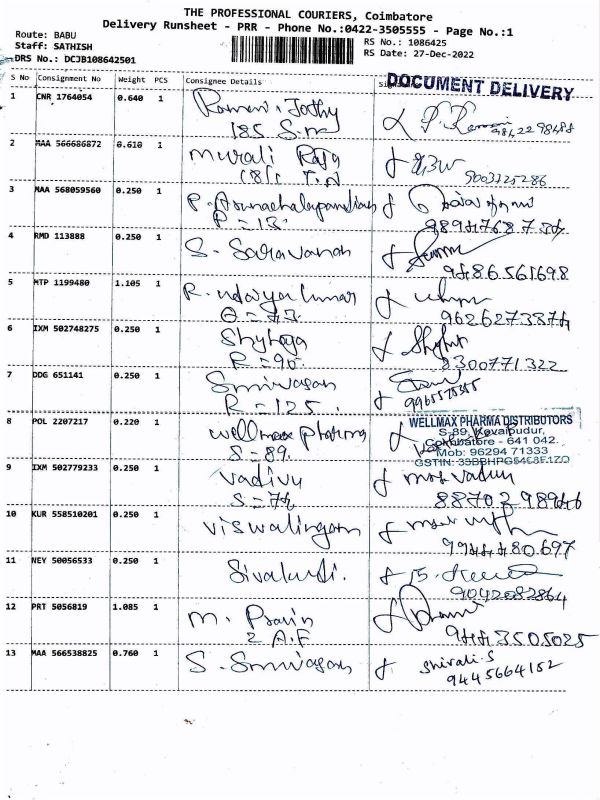 THE PROFESSIONAL COURIERS, Coimbatore
Delivery Runsheet - PRR - Phone No.:0422-3505555 - Page No.:1
Route: BABU
Staff: SATHISH
DRS No.: DCJB108642501
RS No.: 1086425
RS Date: 27-Dec-2022
S No Consignment No Weight PCS Consignee Details
DOCUMENT DELIVERY
1 CNR 1764054 0.640 1 Ramani Jothy
185 S.M
98422 98484
2 MAA 566686872 0.610 1 Murali Raja
9003725286
3 MAA 568059560 0.250 1 P. Arunachalapandian
P = 13.
4 RMD 113888 0.250 1 S. Saravanan
9486561698
5 MTP 1199480 1.105 1 R. udayakumar
9626273874
6 IXM 502748275 0.250 1 Shylaja
R = 90.
8300771322
7 DDG 651141 0.250 1 Srinivasan
R = 125.
8 POL 2207217 0.220 1 wellmax pharma
S = 89.
WELLMAX PHARMA DISTRIBUTORS
S-89, Kovaipudur,
Coimbatore - 641 042.
Mob: 96294 71333
GSTIN:
9 IXM 502779233 0.250 1 Vadivu
S = 74
10 KUR 558510201 0.250 1 Viswalingam
9944480697
11 NEY 50056533 0.250 1
9042082864
12 PRT 5056819 1.085 1 M. Pravin
2 A.F
9443505025
13 MAA 566538825 0.760 1 S. Srinivasan
Shivali.S
9445664152